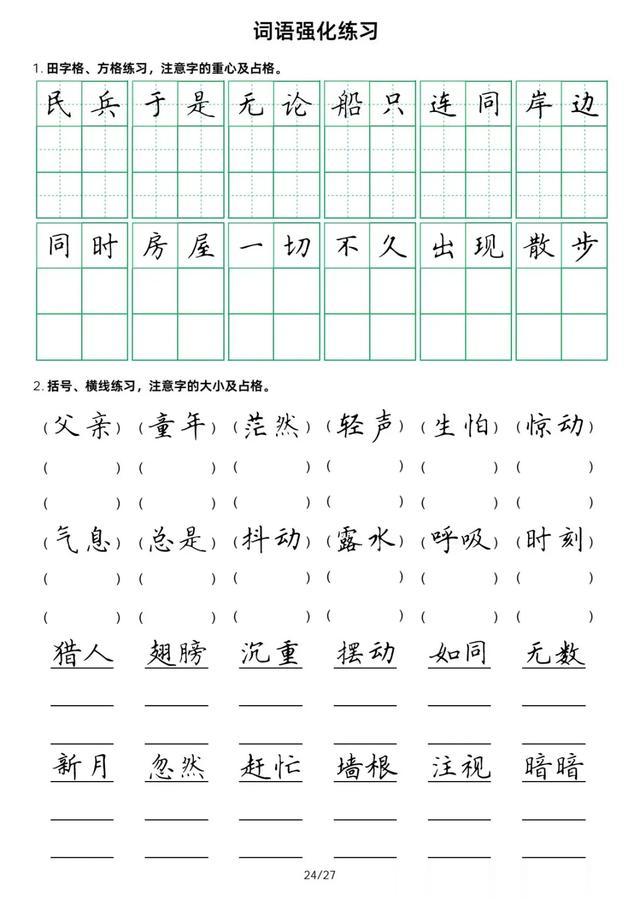 词语强化练习
1. 田字格、方格练习，注意字的重心及占格。
民兵 于是 无论 船只 连同 岸边
同时 房屋 一切 不久 出现 散步
2. 括号、横线练习，注意字的大小及占格。
(父亲) (童年) (茫然) (轻声) (生怕) (惊动)
( ) ( ) ( ) ( ) ( ) ( )
( ) ( ) ( ) ( ) ( ) ( )
(气息) (总是) (抖动) (露水) (呼吸) (时刻)
( ) ( ) ( ) ( ) ( ) ( )
( ) ( ) ( ) ( ) ( ) ( )
猎人 翅膀 沉重 摆动 如同 无数
新月 忽然 赶忙 墙根 注视 暗暗
24/27